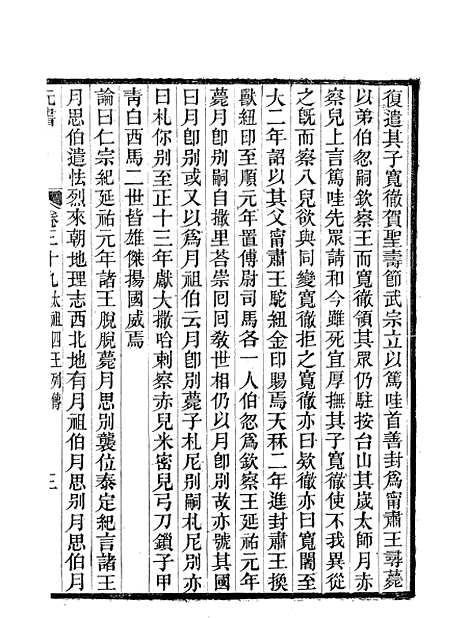 復遣其子寬徹賀聖壽節武宗立以篤哇首善封爲甯肅王尋薨
以弟伯忽嗣欽察王而寬徹領其眾仍駐按台山其歲太師月赤
察兒上言篤哇先眾請和今雖死宜厚撫其子寬徹使不我異從
之旣而察八兒欲與同變寬徹拒之寬徹亦曰欵徹亦曰寬闍至
大二年詔以其父甯肅王駝紐金印賜焉天秝二年進封肅王換
獸紐印至順元年置傅尉司馬各一人伯忽爲欽察王延祐元年
薨月卽別嗣自撒里荅崇囘囘敎世相仍以月卽別故亦號其國
曰月卽別或又以爲月祖伯云月卽別薨子札尼別嗣札尼別亦
曰札你別至正十三年獻大撒哈剌察赤兒米密兒弓刀鎖子甲
靑白西馬二世皆雄傑揚國威焉
論曰仁宗紀延祐元年諸王脫脫薨月思別襲位泰定紀言諸王
月思伯遣怯烈來朝地理志西北地有月祖伯月思別月思伯月
元書
卷三十九太祖四王列傳
三